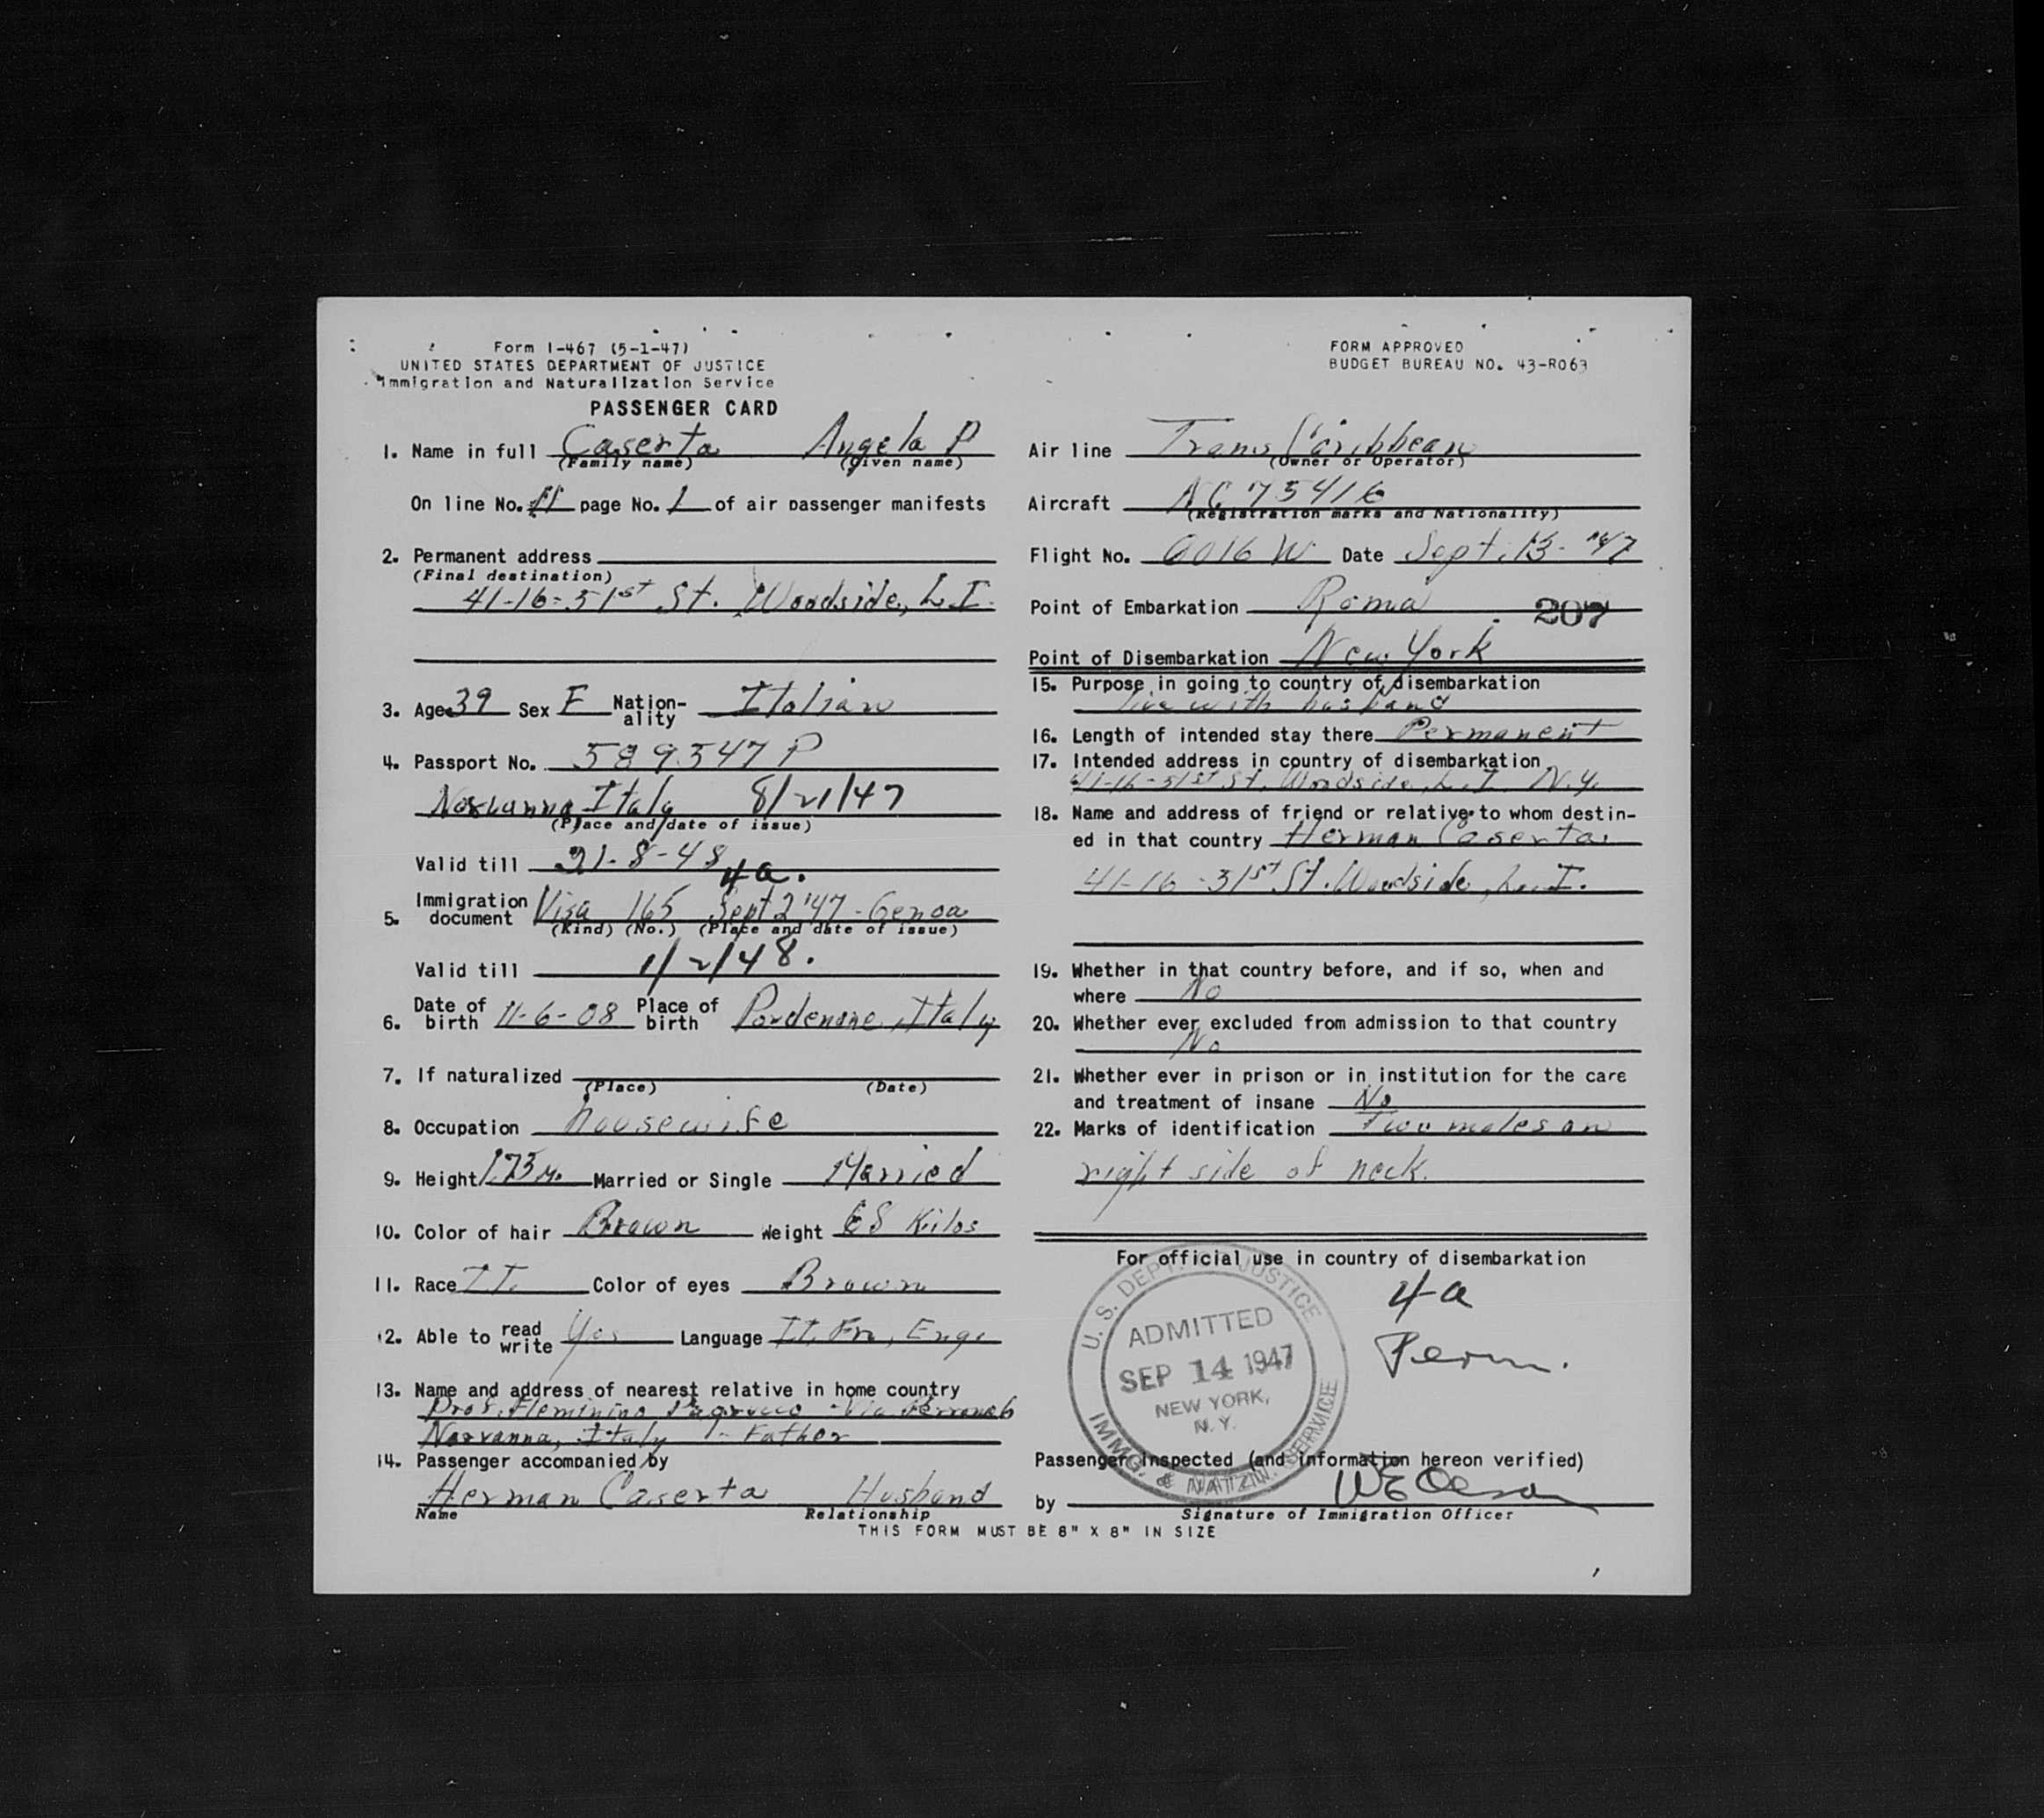 Form I-467 (5-1-47)
UNITED STATES DEPARTMENT OF JUSTICE
Immigration and Naturalization Service
PASSENGER CARD
FORM APPROVED
BUDGET BUREAU NO. 43-R063
1. Name in full Caserta Angela P
(Family name) (Given name)
On line No. 11 page No. 1 of air passenger manifests
2. Permanent address
(Final destination)
41-16-51st St. Woodside, L.I.
3. Age 39 Sex F Nation-ality Italian
4. Passport No. 589547 P
Italy 8/21/47
(Place and date of issue)
Valid till 21-8-48
4a.
5. Immigration document Visa 165 Sept 2 '47 - Genoa
(Kind) (No.) (Place and date of issue)
Valid till 1/2/48.
6. Date of birth 11-6-08 Place of birth Pordenone, Italy
7. If naturalized
(Place) (Date)
8. Occupation housewife
9. Height 1.75 M. Married or Single Married
10. Color of hair Brown Weight 68 Kilos
11. Race IT. Color of eyes Brown
12. Able to read write Yes Language It. Fr, Eng.
13. Name and address of nearest relative in home country
Prof. Via
Italy - Father
14. Passenger accompanied by
Herman Caserta Husband
Name Relationship
Air line Trans Caribbean
(Owner or Operator)
Aircraft NC 75416
(Registration marks and Nationality)
Flight No. 6016 W Date Sept. 13 - '47
Point of Embarkation Roma
207
Point of Disembarkation New York
15. Purpose in going to country of disembarkation
live with husband
16. Length of intended stay there Permanent
17. Intended address in country of disembarkation
41-16-51st St. Woodside, L.I. N.Y.
18. Name and address of friend or relative to whom destin-
ed in that country Herman Caserta
41-16-51st St. Woodside, L.I.
19. Whether in that country before, and if so, when and
where No
20. Whether ever excluded from admission to that country
No
21. Whether ever in prison or in institution for the care
and treatment of insane No
22. Marks of identification two moles on
right side of neck.
For official use in country of disembarkation
4a
Perm.
U. S. DEPT. OF JUSTICE
ADMITTED
SEP 14 1947
NEW YORK,
N. Y.
IMMG. & NATZN. SERVICE
Passenger inspected (and information hereon verified)
by
Signature of Immigration Officer
THIS FORM MUST BE 8" X 8" IN SIZE